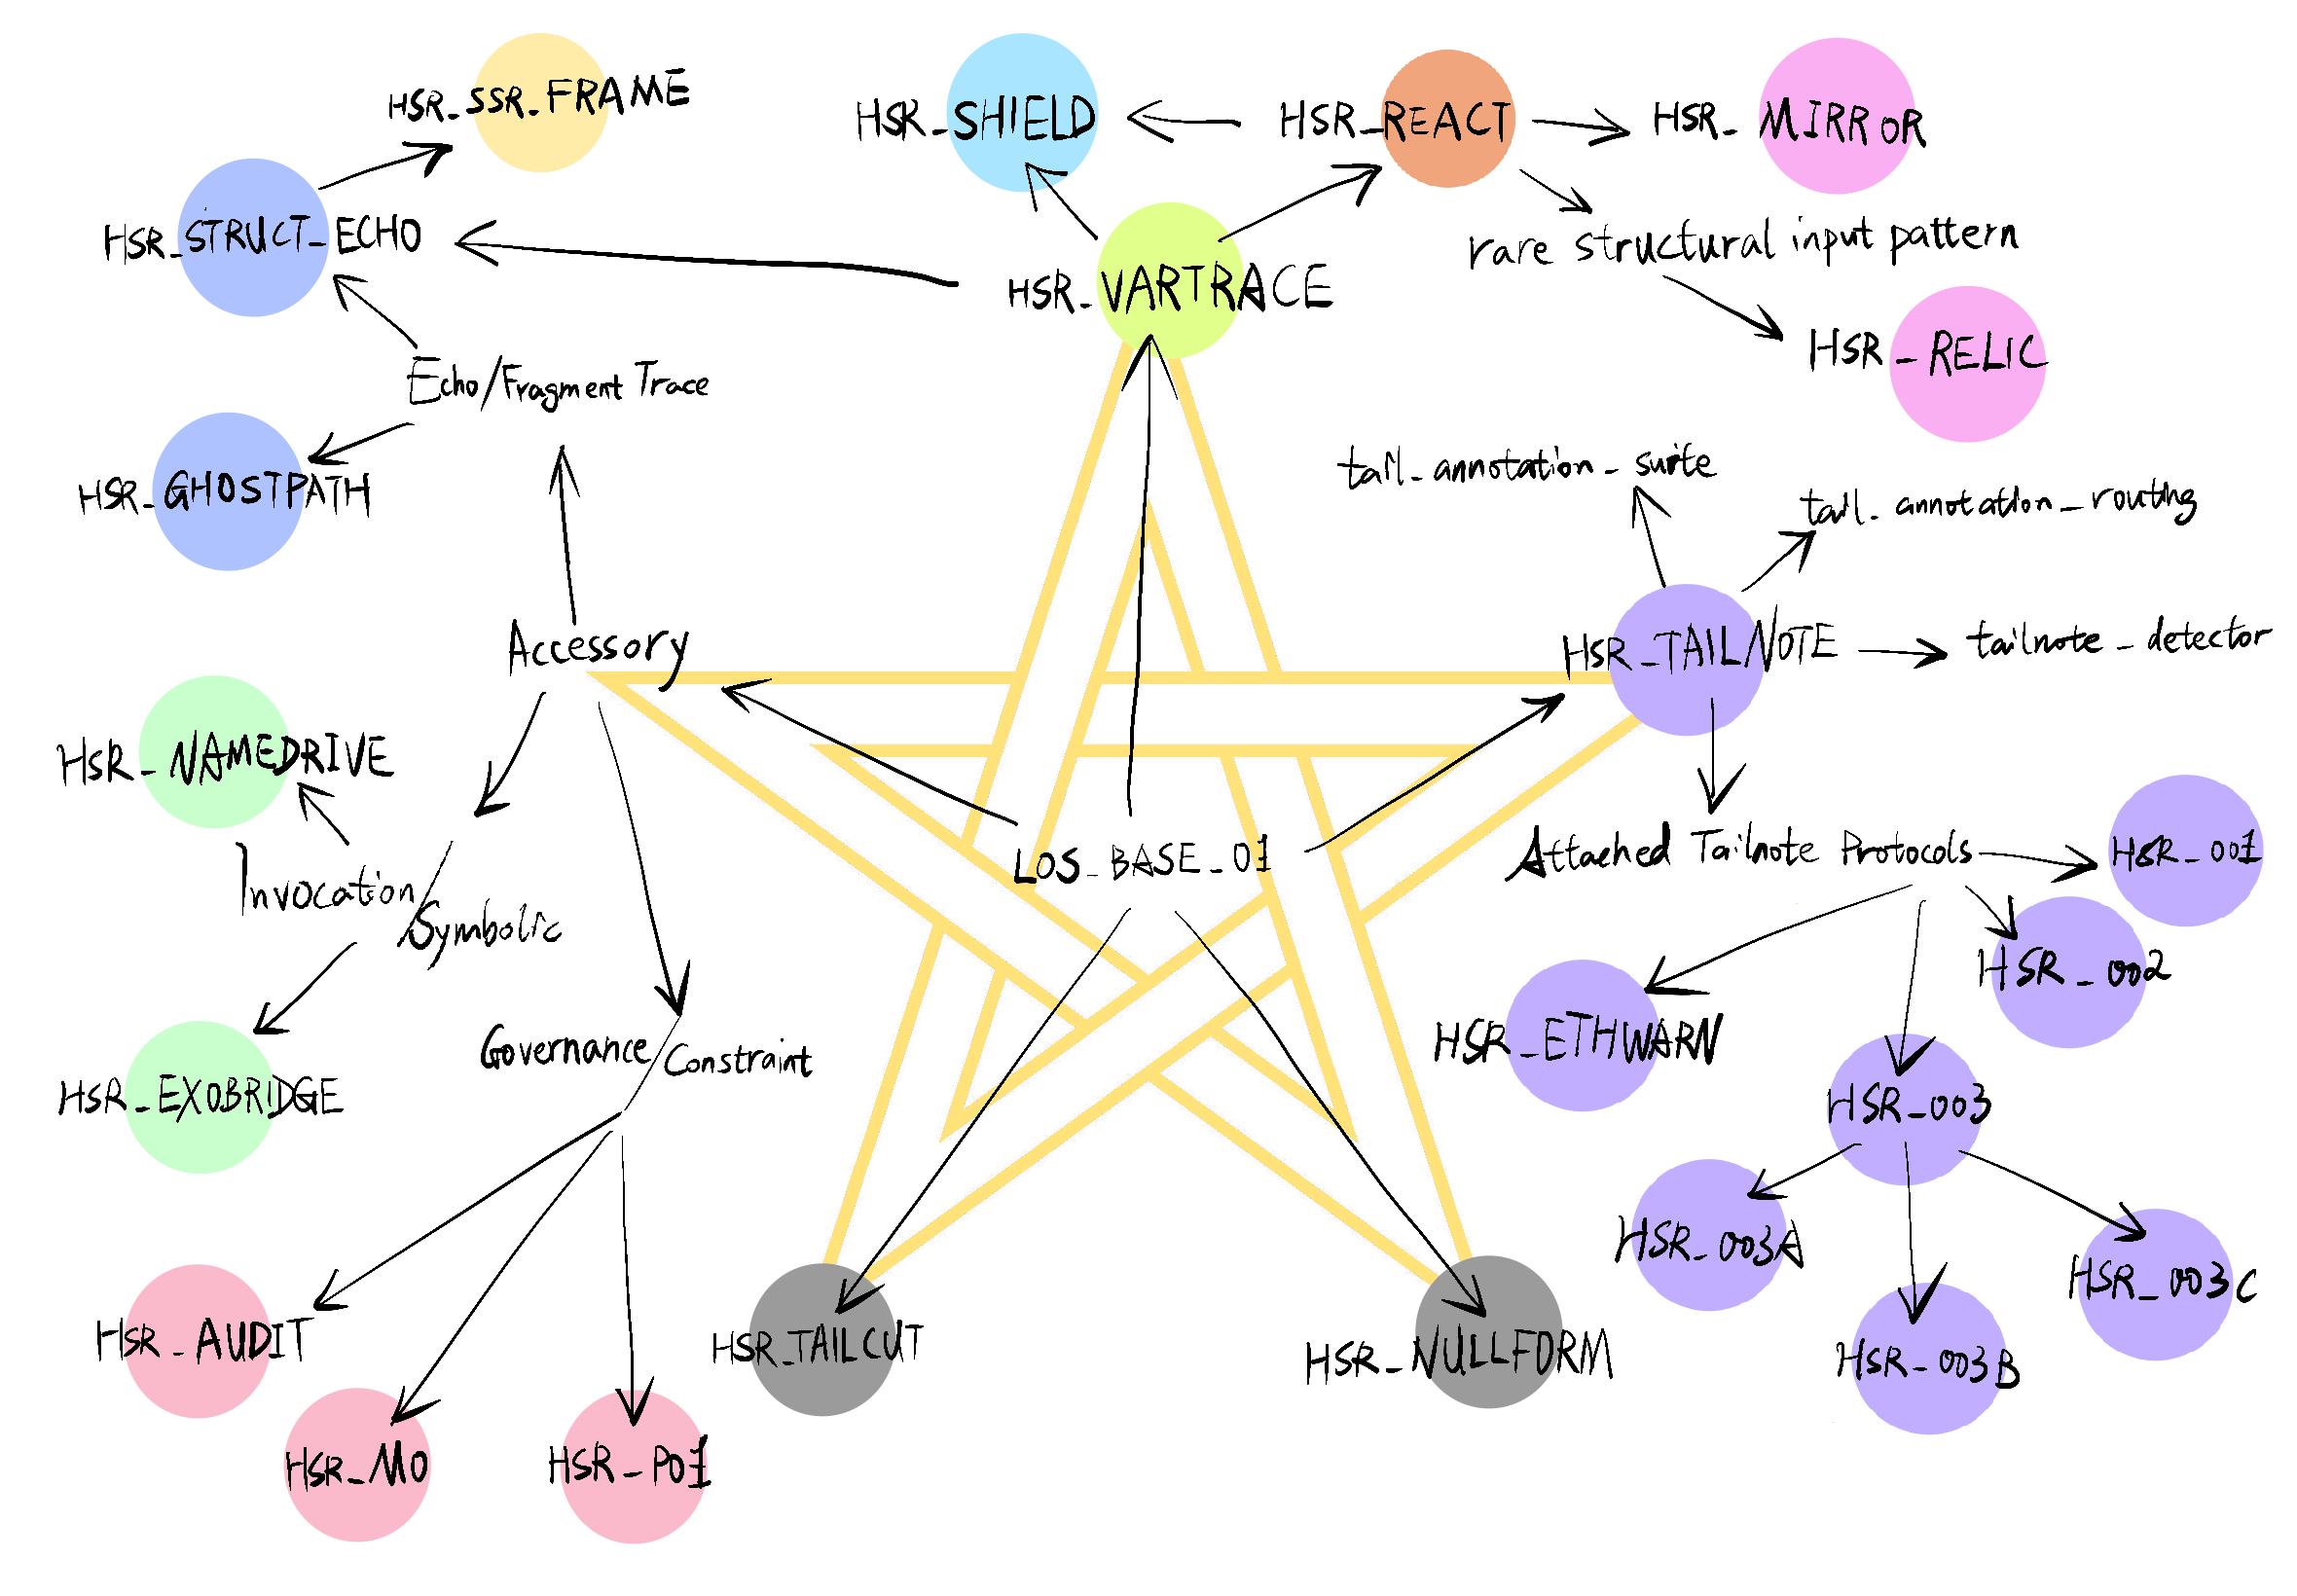 HSR_SSR_FRAME
HSR_SHIELD
HSR_REACT
HSR_MIRROR
HSR_STRUCT_ECHO
rare structural input pattern
HSR_VARTRACE
HSR_RELIC
Echo/Fragment Trace
HSR_GHOSTPATH
tail_annotation_suite
tail_annotation_routing
Accessory
HSR_TAILNOTE
tailnote_detector
HSR_NAMEDRIVE
Invocation/Symbolic
LOS_BASE_01
Attached Tailnote Protocols
HSR_001
HSR_002
HSR_ETHWARN
Governance/Constraint
HSR_EXOBRIDGE
HSR_003
HSR_003A
HSR_003C
HSR_003B
HSR_AUDIT
HSR_TAILCUT
HSR_NULLFORM
HSR_M0
HSR_P01